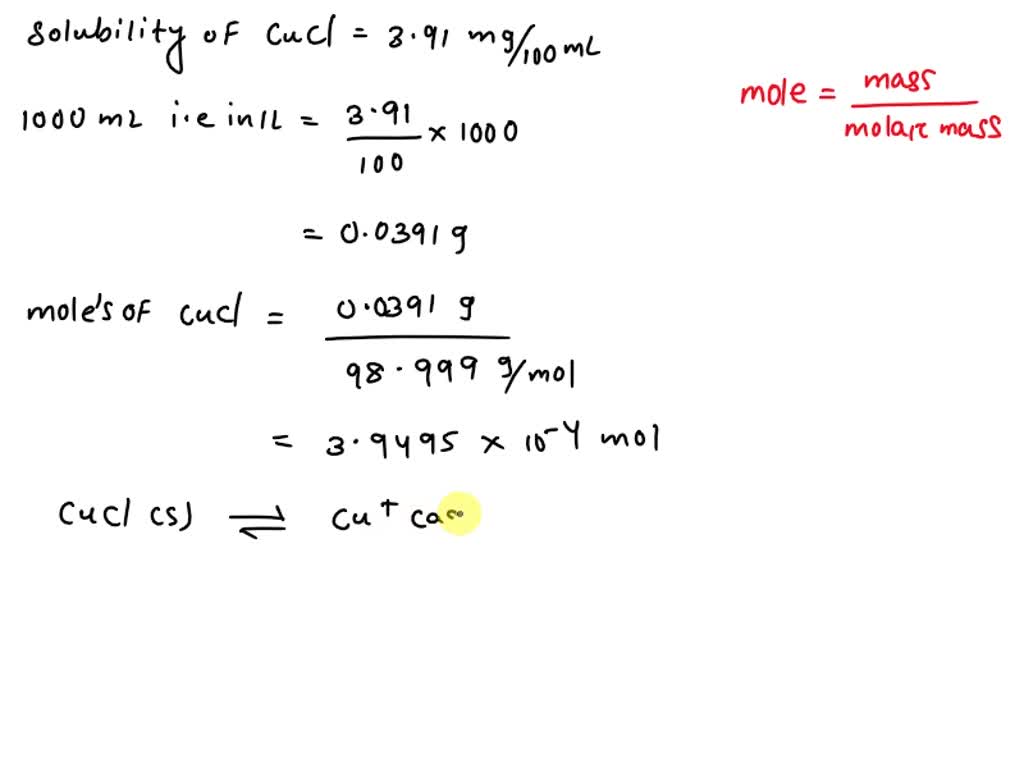 Solubility of CuCl = 3.91 mg/100 mL
mole = mass / molar mass
1000 mL i.e in 1L = 3.91 / 100 × 1000
= 0.0391 g
mole's of CuCl = 0.0391 g / 98.999 g/mol
= 3.9495 × 10⁻⁴ mol
CuCl (s) ⇌ Cu⁺ (aq